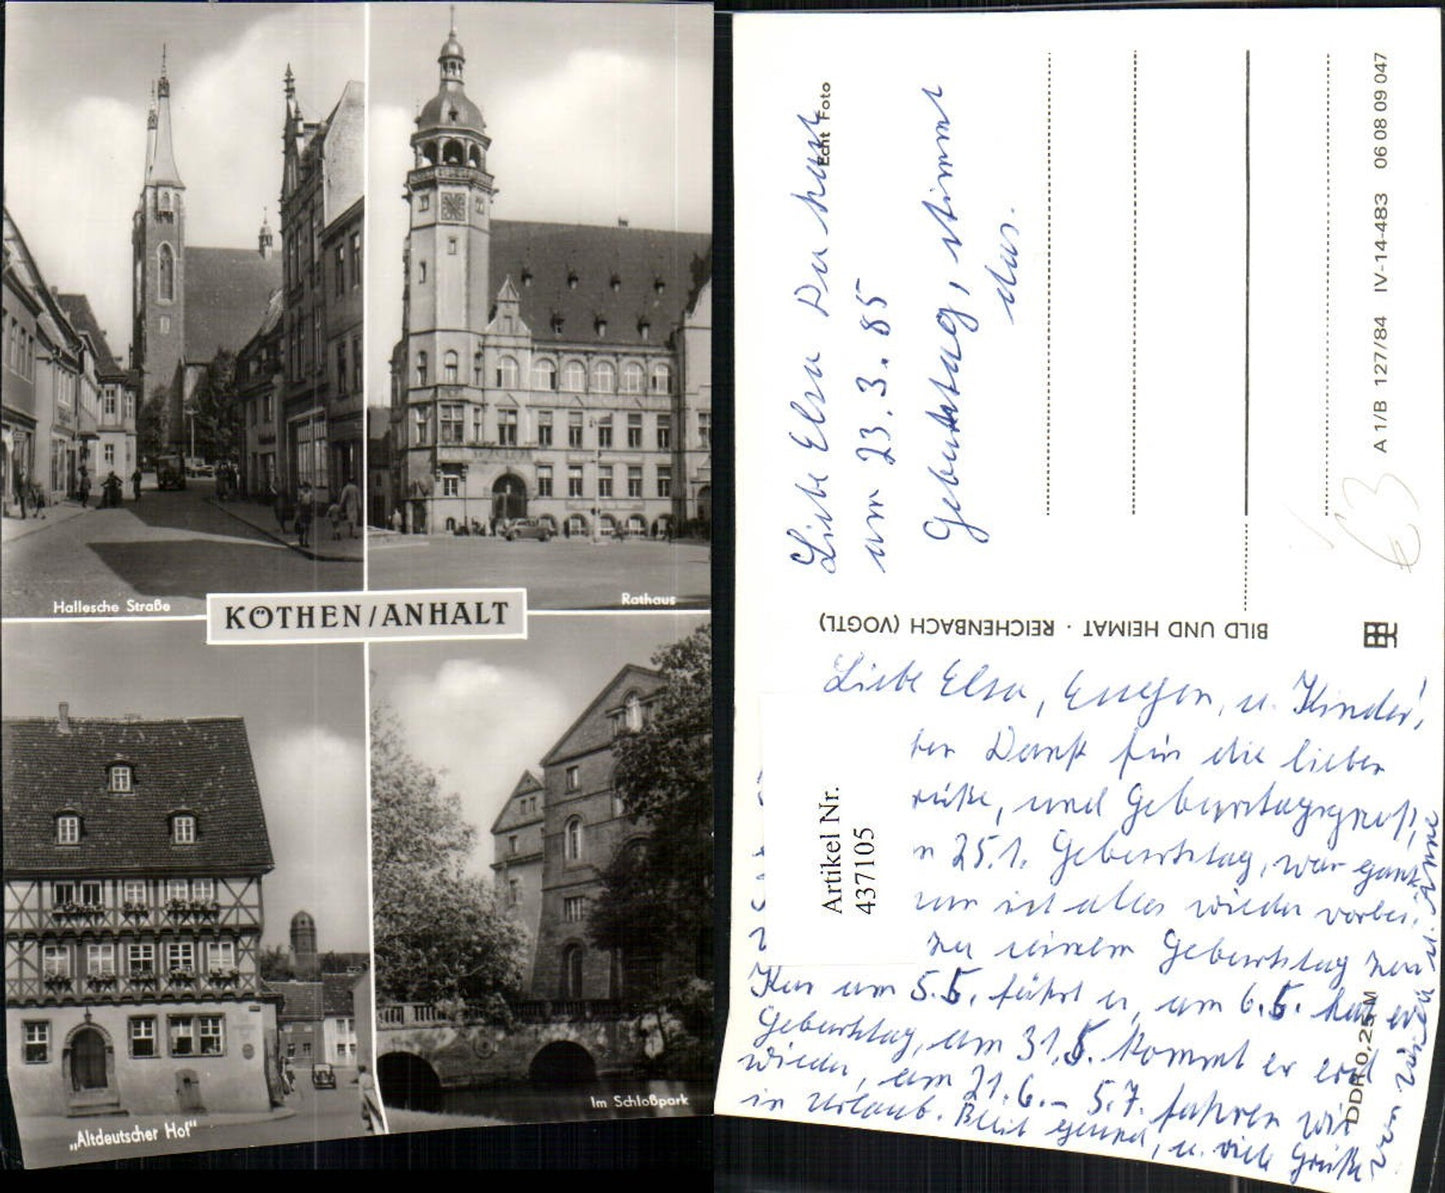 Hallesche Straße
Rathaus
KÖTHEN/ANHALT
„Altdeutscher Hof“
Im Schloßpark
Echt Foto
Liebe Elsa Du hast
am 23.3.85
Geburtstag, stimmt
das.
A 1/B 127/84 IV-14-483 06 08 09 047
€3
BILD UND HEIMAT · REICHENBACH (VOGTL)
Liebe Elsa, u. Kinder,
Dank für die lieben
und
25.1. Geburtstag, war ganz
ist alles wieder vorbei.
Zu seinem Geburtstag zur
Kur am 5.5. fährt er, am 6.5. hat er
Geburtstag, am 31.5. kommt er erst
wieder, am 21.6.– 5.7. fahren wir
in Urlaub. Bleibt gesund, u. viele Grüße
von u. Anne
DDR 0,25 M
Artikel Nr.
437105